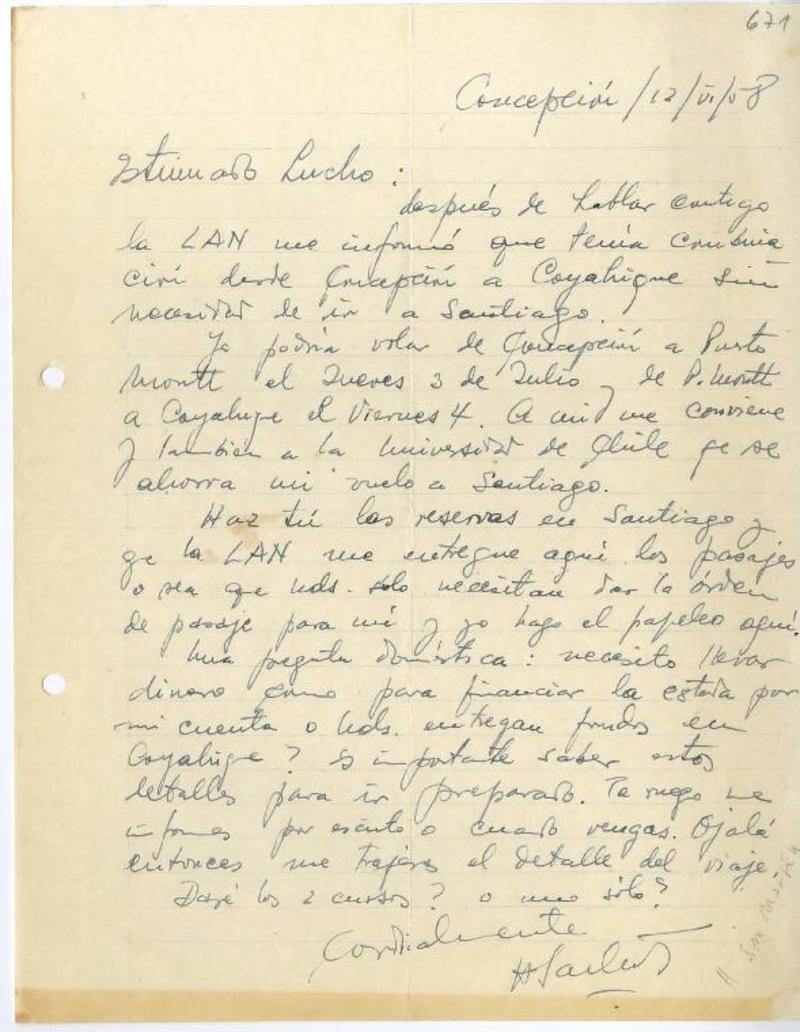 671
Concepción/12/VI/58
Estimado Lucho:
después de hablar contigo
la LAN me informó que tenía combina
ción desde Concepción a Coyahique sin
necesidad de ir a Santiago.
Yo podría volar de Concepción a Puerto
Montt el Jueves 3 de Julio y de P. Montt
a Coyahique el Viernes 4. A mi me conviene
y también a la Universidad de Chile qe se
ahorra mi vuelo a Santiago.
Haz tú las reservas en Santiago y
qe la LAN me entregue aquí los pasajes
o sea que Uds. sólo necesitan dar la órden
de pasaje para mí y yo hago el papeleo aquí.
Una pregunta doméstica: necesito llevar
dinero como para financiar la estada por
mi cuenta o Uds. entregan fondos en
Coyahique? Es importante saber estos
detalles para ir preparado. Te ruego me
informes por escrito o cuando vengas. Ojalá
entonces me trajeras el detalle del viaje.
Daré los 2 cursos? o uno sólo?
Cordialmente
A San Martín